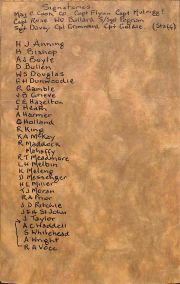 Signatures
Maj E Cook CO Capt Flynn Capt
Capt Rose WO Bullard S/Sgt
Sgt Davey Cpl Grimward Cpl (Staff)
H J Anning
H Bishop
A J Boyle
D Bullen
W S Douglas
H H Dunwoodie
R Gamble
J B Grieve
C E Hazelton
J Heath
A Harmer
G Holland
R King
K A McKay
R Maddock
Mahaffy
R T Meadmore
L H Melbin
K Meleng
D Messenger
H L Miller
T J Moran
R A Prior
J D Ritchie
J S A St John
J Taylor
A C Waddell
S Whitehead
A Wright
R A Voce